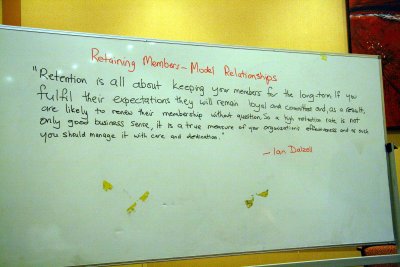 Retaining Members - Model Relationships
"Retention is all about keeping your members for the long-term. If you
fulfil their expectations they will remain loyal and committed and, as a result,
are likely to renew their membership without question. So a high retention rate is not
only good business sense, it is a true measure of your organisations effectiveness and as such
you should manage it with care and dedication."
- Ian Dalzell